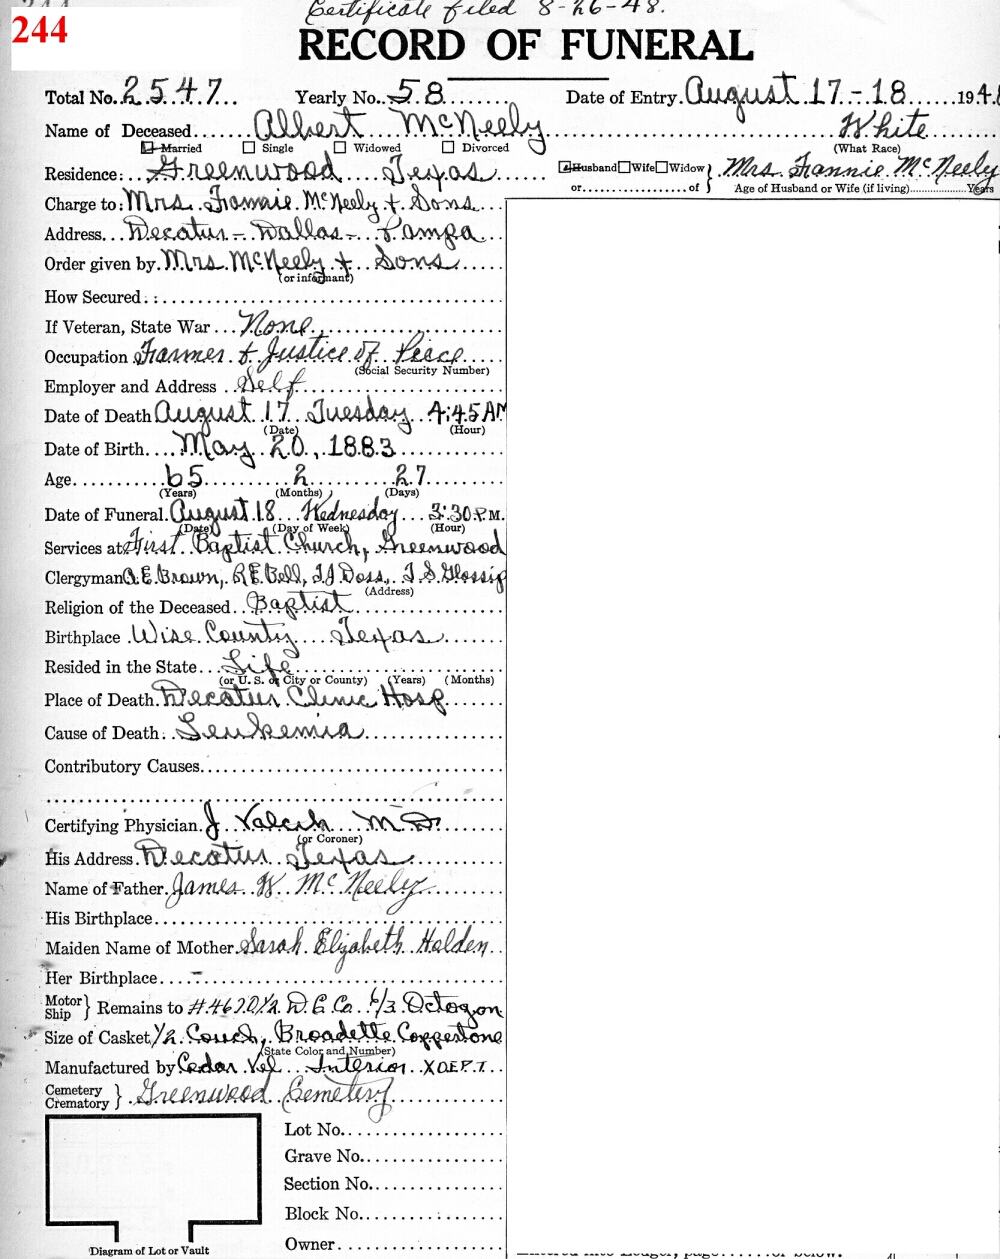 Certificate filed 8-26-48.
244
RECORD OF FUNERAL
Total No. 2547 Yearly No. 58 Date of Entry. August 17-18 194
Name of Deceased Albert McNeely White
Married Single Widowed Divorced (What Race)
Residence: Greenwood Texas Husband Wife Widow or of Mrs. Fannie McNeely
Age of Husband or Wife (if living) Years
Charge to: Mrs. Fannie McNeely + Sons
Address Decatur - Dallas - Pampa
Order given by Mrs. McNeely + Sons
(or informant)
How Secured
If Veteran, State War None
Occupation Farmer + Justice of Peace
(Social Security Number)
Employer and Address Self
Date of Death August 17 Tuesday 4:45 AM
(Date) (Hour)
Date of Birth May 20, 1883
Age 65 2 27
(Years) (Months) (Days)
Date of Funeral August 18 Wednesday 3:30 P.M.
(Date) (Day of Week) (Hour)
Services at First Baptist Church, Greenwood
Clergyman A.E. Brown, R.E. Bell, T.J. Doss, T.S. Glossip
(Address)
Religion of the Deceased Baptist
Birthplace Wise County Texas
Resided in the State Life
(or U. S. or City or County) (Years) (Months)
Place of Death Decatur Clinic Hosp
Cause of Death Leukemia
Contributory Causes
Certifying Physician J M D
(or Coroner)
His Address Decatur Texas
Name of Father James W McNeely
His Birthplace
Maiden Name of Mother Sarah Elizabeth Holden
Her Birthplace -
Motor Ship } Remains to D.C. Co. 6/3 Octogon
Size of Casket 1/2 Couch, Broadette Coppertone
(State Color and Number)
Manufactured by Cedar Vel Interior X DEPT.
Cemetery Crematory } Greenwood Cemetery
Lot No.
Grave No.
Section No.
Block No.
Owner
Diagram of Lot or Vault